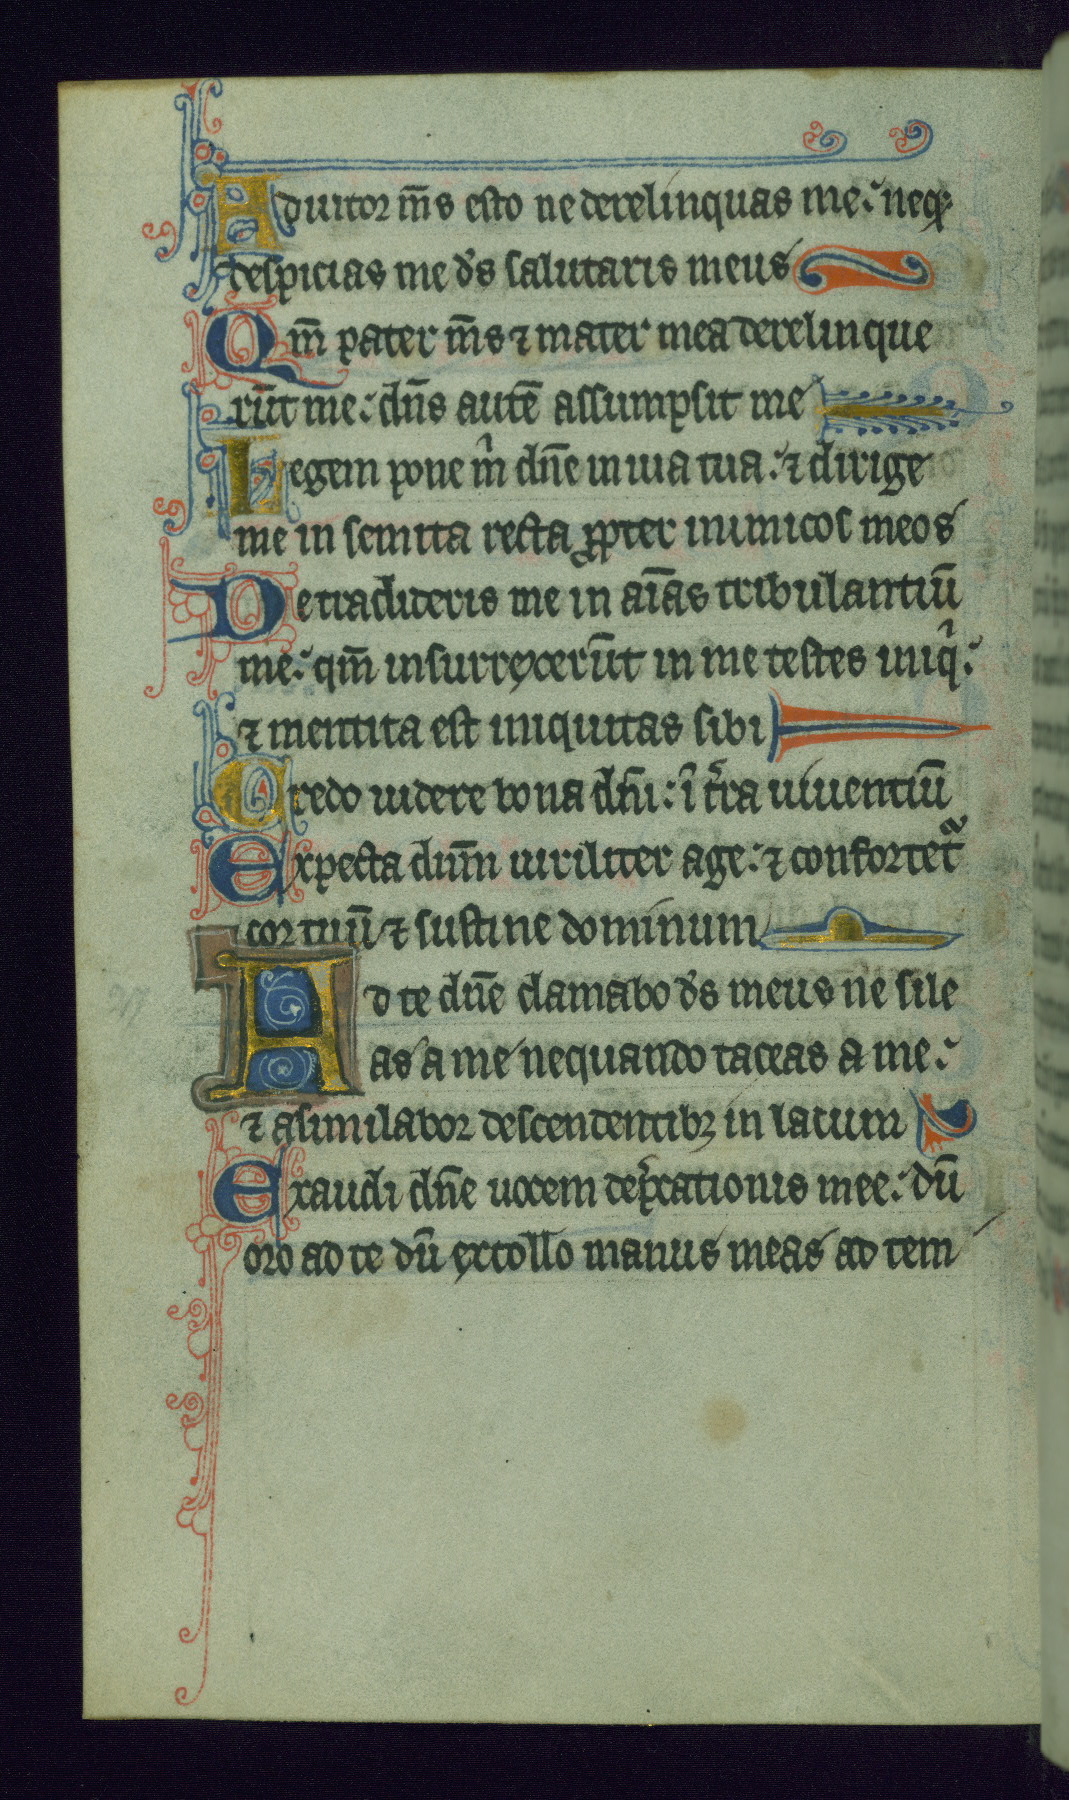 Adiutor m̄s esto ne derelinquas me: neq;
despicias me d̄s salutaris meus
Qm̄ pater m̄s ⁊ mater mea derelinque
rūt me: dn̄s autē assumpsit me
Legem pone m̄ dn̄e in uia tua: ⁊ dirige
me in semita recta ꝓpter inimicos meos
Ne tradideris me in aīas tribulantiū
me: qm̄ insurrexerūt in me testes iniqⁱ:
⁊ mentita est iniquitas sibi
Credo uidere bona dn̄i: ī tr̄a uiuentiū
Expecta dnm̄ uiriliter age: ⁊ confortet᷑
cor tuū ⁊ sustine dominum
Ad te dn̄e clamabo d̄s meus ne sile
as a me nequando taceas a me:
⁊ asimilabor descendentibꝫ in lacum
Exaudi dn̄e uocem dep̄cationis mee: dū
oro ad te dū extollo manus meas ad tem